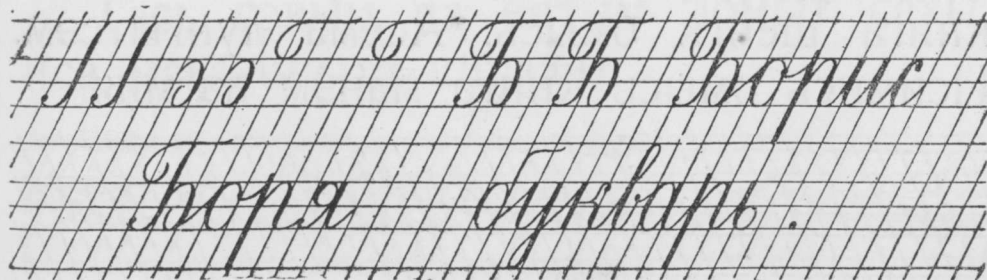 Б Б Борис
Боря букварь.